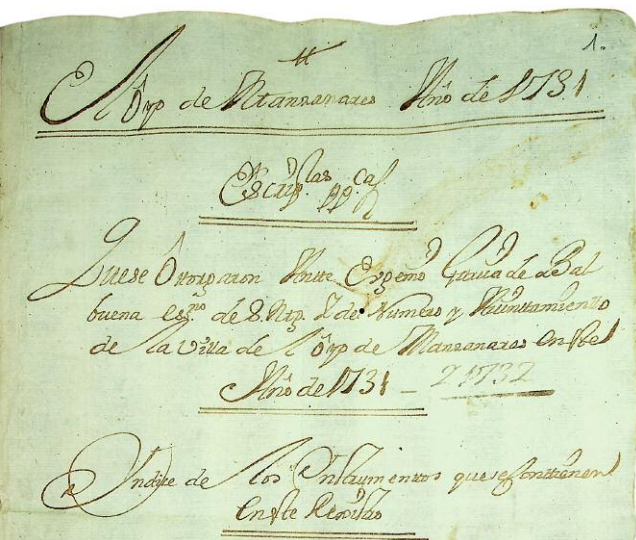 1.
Corp de Manzanares Año de 1731
Escrip.las pp.cas
Que se Otorgaron Ante Eugenio Garcia de a Bal
buena es.no de S. Mg. y de Numero y Aiuntamiento
de la Villa de Corp de Manzanares en este
Año de 1731 - y 1732
Yndice de los Ynstrumentos que se Contienen
en este Rexistro